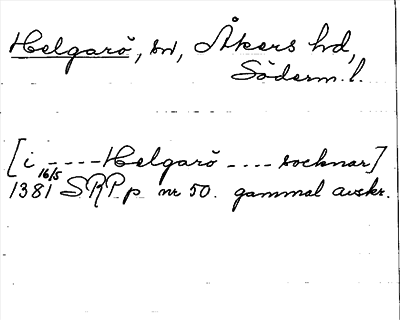 Helgarö, sn, Åkers hd,
Söderm. l.
[i ---- Helgarö ---- socknar]
1381 16/5 SRPp nr 50. gammal avskr.